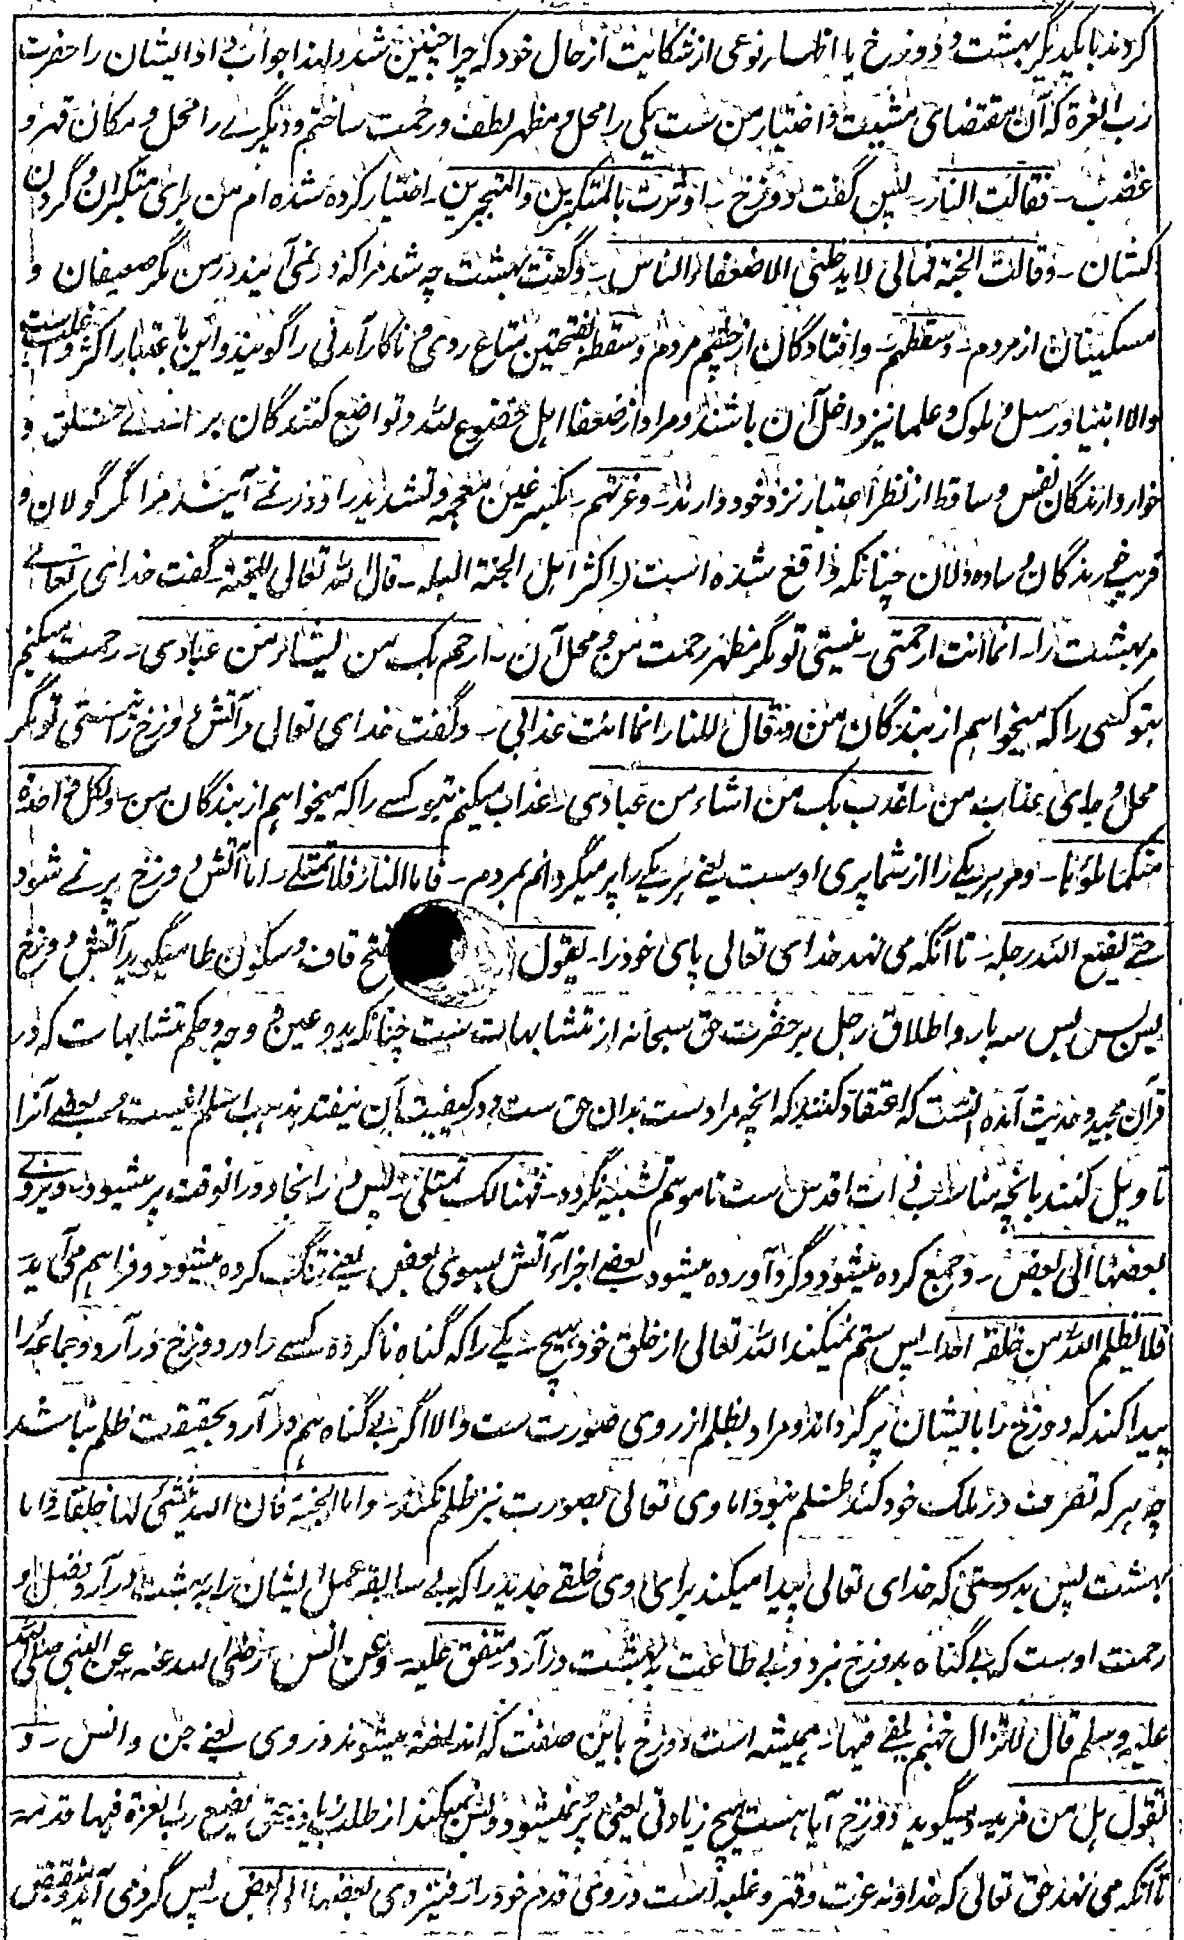 کردند بایکدیگر بهشت و دوزخ با اظهار نوعی از شکایت از حال خود که چرا چنین شد و لهذا جواب داد ایشان را حضرت
رب العزة که آن مقتضای مشیت و اختیار من ست یکی را محل و مظهر لطف و رحمت ساختم و دیگرے را محل و مکان قهر و
غضب ۔ فقالت النار ۔ پس گفت دوزخ ۔ اوثرت بالمتکبرین والمتجبرین ۔ اختیار کرده شده ام من برای متکبران و گردن
کشان ۔ وقالت الجنة فمالی لا یدخلنی الا ضعفاء الناس ۔ و گفت بهشت چه شد مرا که در نمی آیند در من مگر ضعیفان و
مسکینان از مردم ۔ وسقطهم ۔ و افتادگان از چشم مردم و سقط بفتحتین متاع ردی و ناکار آمدنی را گویند و این باعتبار اکثر و اغلب ست
والا انبیا و رسل و ملوک و علما نیز داخل آن باشند و مراد از ضعفا اهل خضوع لله و تواضع کنندگان بر خلق و
خوار دارندگان نفس و ساقط از نظر اعتبار نزد خود دارند ۔ وغرتهم ۔ بکسر غین معجمه و تشدید را و در نمے آیند مرا مگر گولان و
فریب خورندگان و ساده دلان چنانکه واقع شده است اکثر اهل الجنة البله ۔ قال الله تعالی للجنة ۔ گفت خدای تعالے
مر بهشت را ۔ انما انت رحمتی ۔ نیستی تو مگر مظهر رحمت من و محل آن ۔ ارحم بک من اشاء من عبادی ۔ رحمت میکنم
بتو کسی را که میخواهم از بندگان من وقال للنار انما انت عذابی ۔ و گفت خدای تعالی مر آتش دوزخ را نیستی تو مگر
محل و جای عذاب من ۔ اعذب بک من اشاء من عبادی ۔ عذاب میکنم بتو کسے را که میخواهم از بندگان من ۔ ولکل واحدة
منکما ملؤها ۔ و مر هر یکے را از شما پری اوست یعنے هر یکے را پر میگردانم بمردم ۔ فاما النار فلا تمتلی ۔ اما آتش دوزخ پر نمے شود
حتے یضع الله رجله ۔ تا آنکه می نهد خدای تعالی پای خود را ۔ یقول بفتح قاف و سکون طا میگوید آتش دوزخ
بس بس بس سه بار و اطلاق رجل بر حضرت حق سبحانه از متشابهات ست چنانکه ید و عین و وجه و حکم متشابهات که در
قرآن مجید و حدیث آمده آنست که اعتقاد کنند که آنچه مراد ست بدان حق ست و در کیفیت آن نیفتند مذهب اسلم اینست و بعضے آنرا
تاویل کنند بانچه مناسب ذات اقدس ست تا موهم تشبیه نگردد ۔ فهنالک تمتلی ۔ پس در انجا و در آنوقت پر میشود ۔ ویزوے
بعضها الی بعض ۔ و جمع کرده میشود و گرد آورده میشود بعضے اجزاء آتش بسوی بعض یعنے تنگ کرده میشود و فراهم می آید
فلا یظلم الله من خلقه احدا ۔ پس ستم نمیکند الله تعالی از خلق خود هیچ یکے را که گناه ناکرده کسے را در دوزخ در آرد و جماعه را
پیدا کند که دوزخ را بایشان پر گرداند و مراد بظلم از روی صورت ست والا اگر بے گناه هم در آرد بحقیقت ظلم نباشد
چه هر که تصرف در ملک خود کند ظلم نبود اما وی تعالی بصورت نیز ظلم نکند ۔ واما الجنة فان الله ینشئ لها خلقا ۔ و اما
بهشت پس بدرستی که خدای تعالی پیدا میکند برای وی خلقے جدید را که بے سابقه عمل ایشان را به بهشت در آرد و فضل و
رحمت اوست که بے گناه بدوزخ نبرد و بے طاعت به بهشت در آرد متفق علیه ۔ وعن انس رضی الله عنه عن النبی صلی الله
علیه وسلم قال لا تزال جهنم یلقے فیها ۔ همیشه است دوزخ باین صفت که انداخته میشود در وی یعنے جن و انس ۔ و
تقول هل من مزید و میگوید دوزخ آیا هست هیچ زیادتی یعنی پر نمیشود و بس نمیکند از طلب زیادتی حتی یضع رب العزة فیها قدمه
تا آنکه می نهد حق تعالی که خداوند عزت و قهر و غلبه است در وی قدم خود را فینزوی بعضها الی بعض ۔ پس گرد می آید